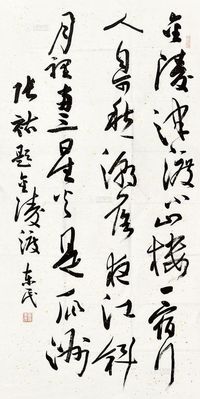 金陵津渡小山樓一宿行
人自可愁潮落夜江斜
月裡兩三星火是瓜洲
張祜題金陵渡 東民